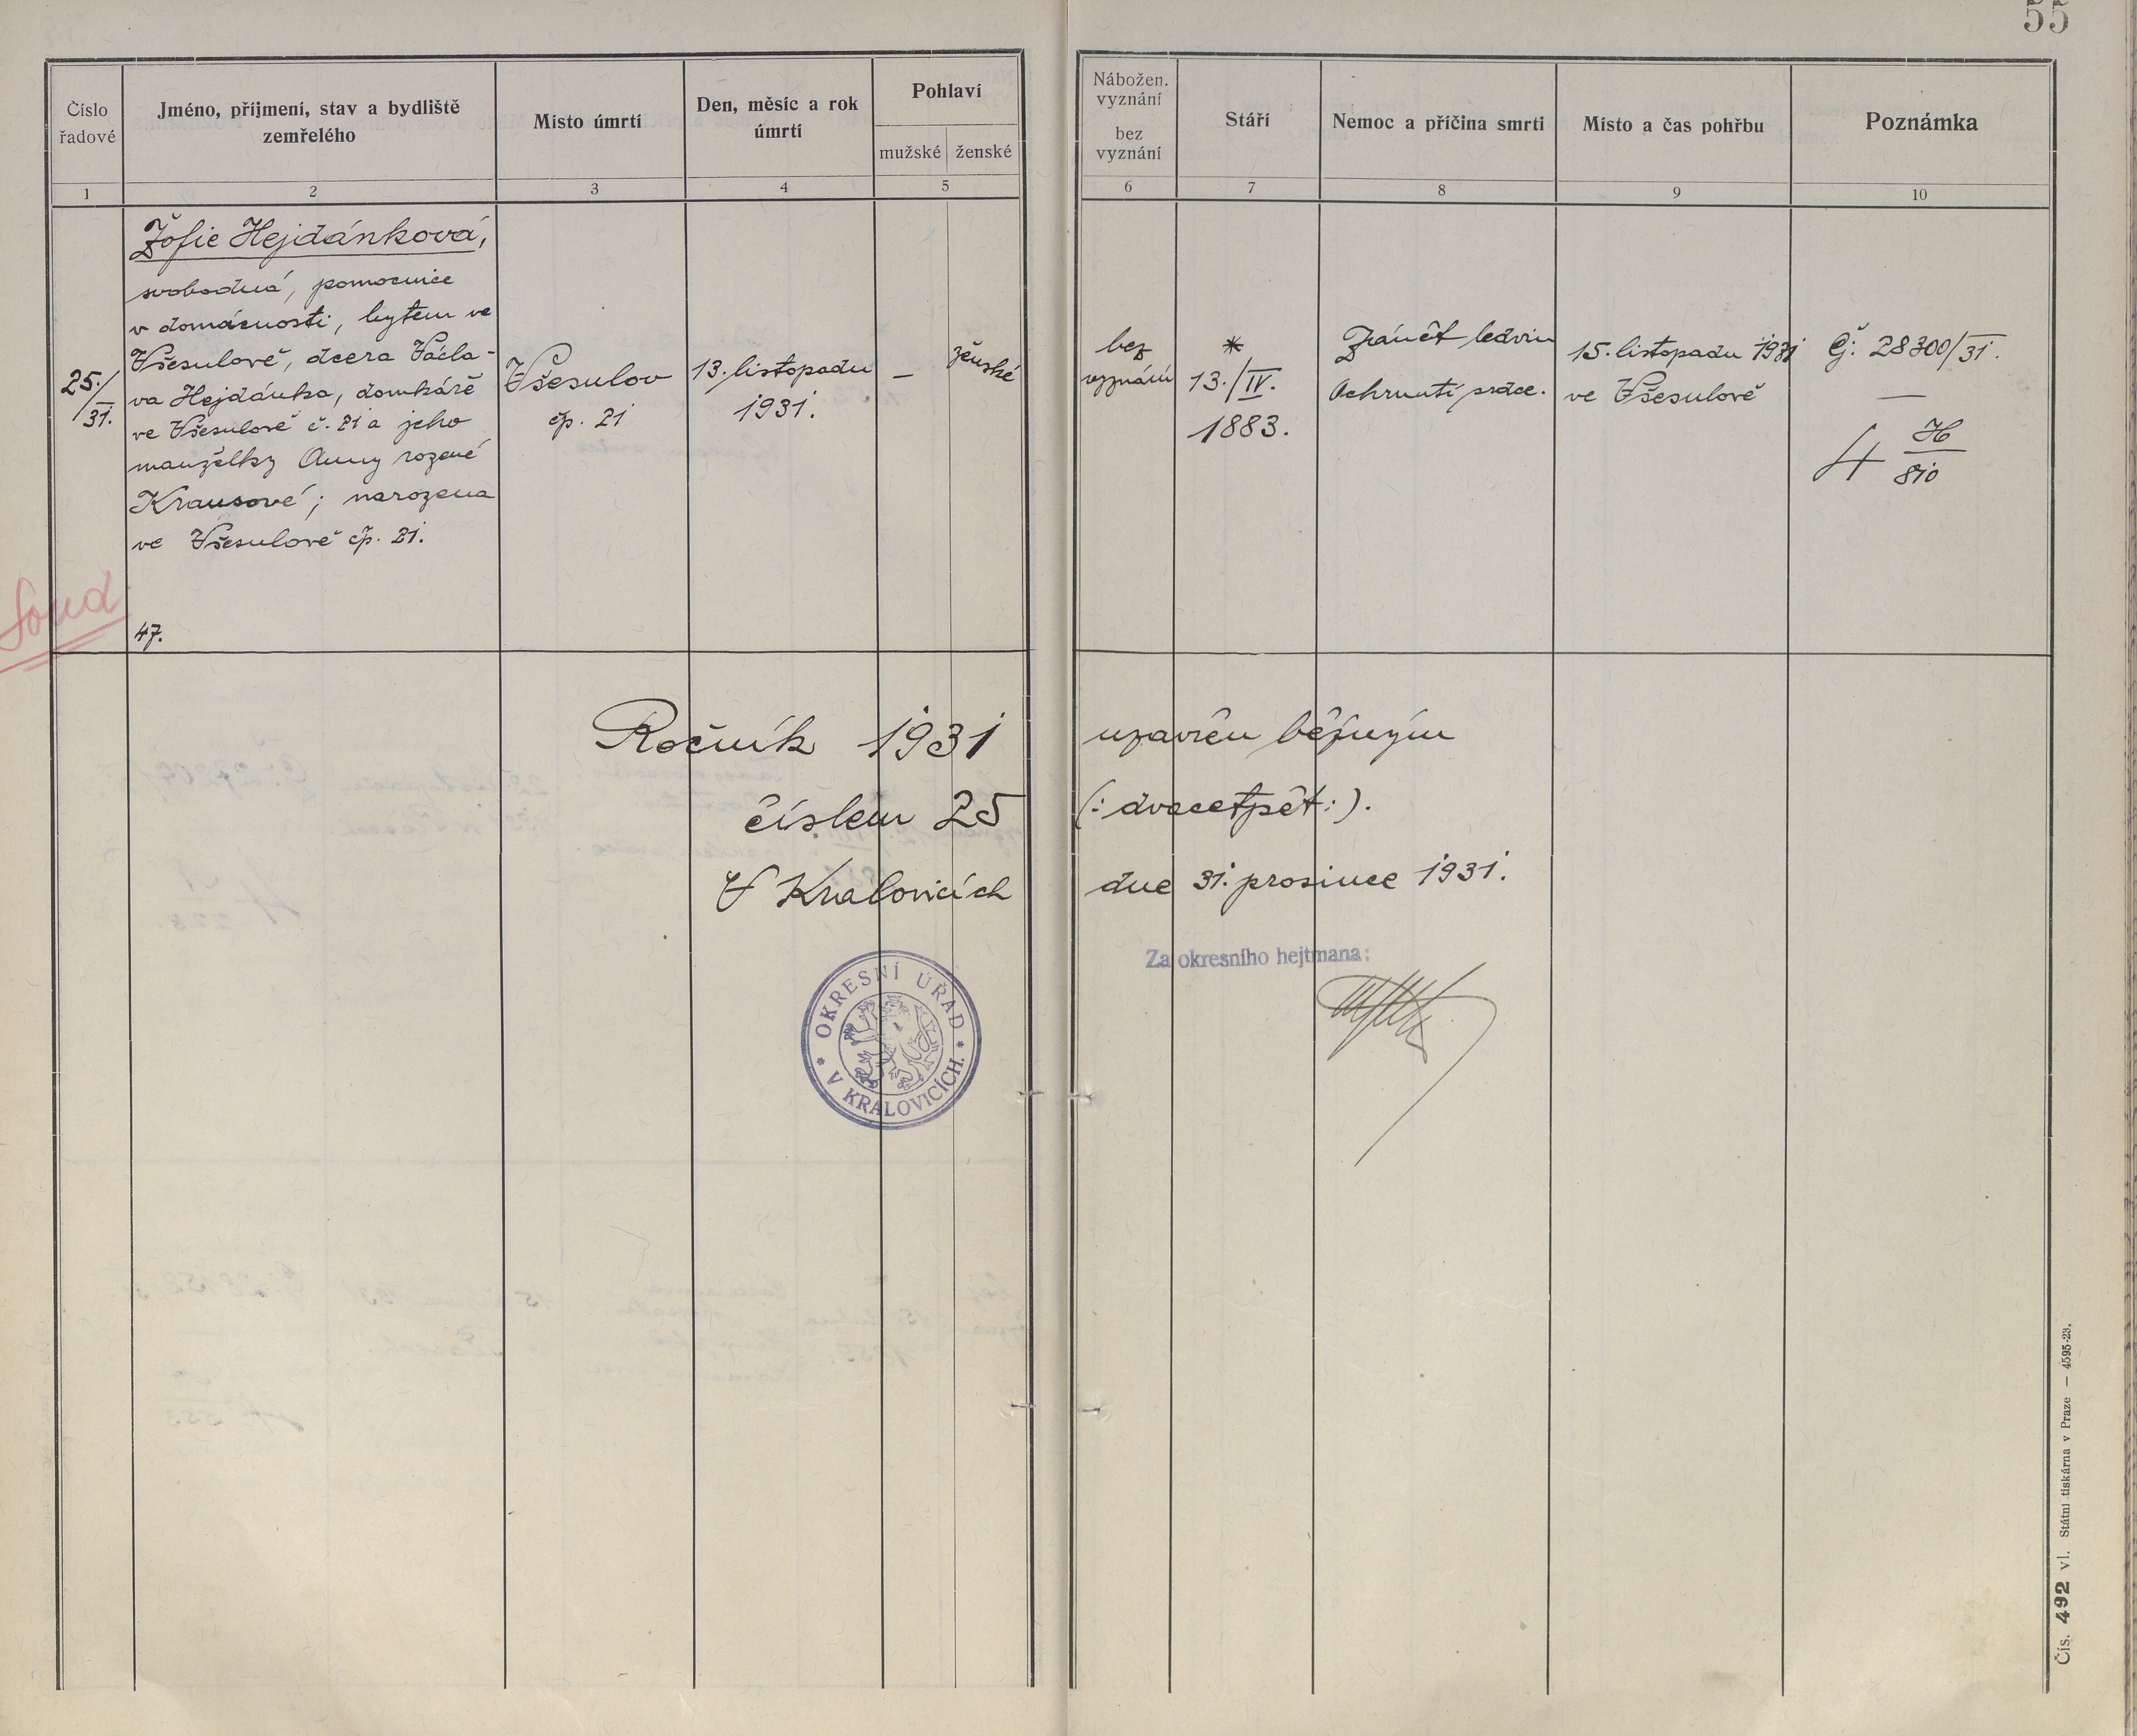 55
Číslo
řadové
Jméno, příjmení, stav a bydliště
zemřelého
Místo úmrtí
Den, měsíc a rok
úmrtí
Pohlaví
mužské
ženské
1
2
3
4
5
Nábožen.
vyznání
bez
vyznání
Stáří
Nemoc a příčina smrti
Místo a čas pohřbu
Poznámka
6
7
8
9
10
25./
31.
Žofie Hejdánková,
svobodná, pomocnice
v domácnosti, bytem ve
Všesulově, dcera Václa-
va Hejdánka, domkáře
ve Všesulově č. 21 a jeho
manželky Anny rozené
Krausové; narozena
ve Všesulově čp. 21.
47.
Všesulov
čp. 21
13. listopadu
1931.
—
ženské
bez
vyznání
*
13./IV.
1883.
Zánět ledvin
Ochrnutí srdce.
15. listopadu 1931
ve Všesulově
Čj: 28300/31.
—
4 H/810
Soud
Ročník 1931 uzavřen běžným
číslem 25 (: dvacetpět :).
V Kralovicích dne 31. prosince 1931.
Za okresního hejtmana:
* OKRESNÍ ÚŘAD *
V KRALOVICÍCH.
Čís. 492 vl. Státní tiskárna v Praze — 4595-23.